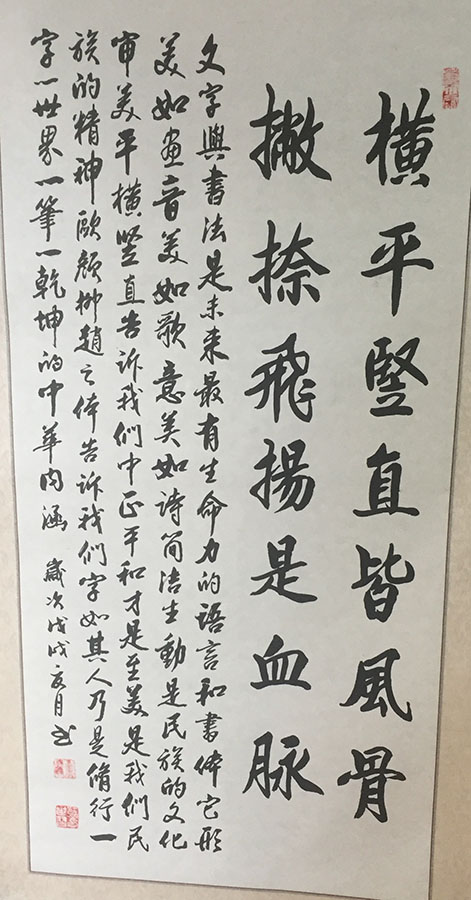 橫平豎直皆風骨
撇捺飛揚是血脉
文字與書法是未来最有生命力的語言和書体它形
美如畫音美如歌意美如诗简洁生動是民族的文化
审美平橫竖直告诉我们中正平和才是至美是我们民
族的精神歐颜柳趙之体告诉我们字如其人乃是脩行一
字一世界一筆一乾坤的中華内涵 歲次戊戌亥月